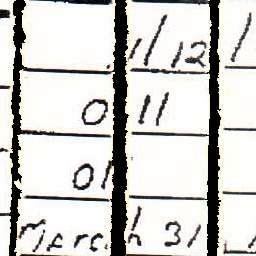 1/12 /
0 11
01
March 31